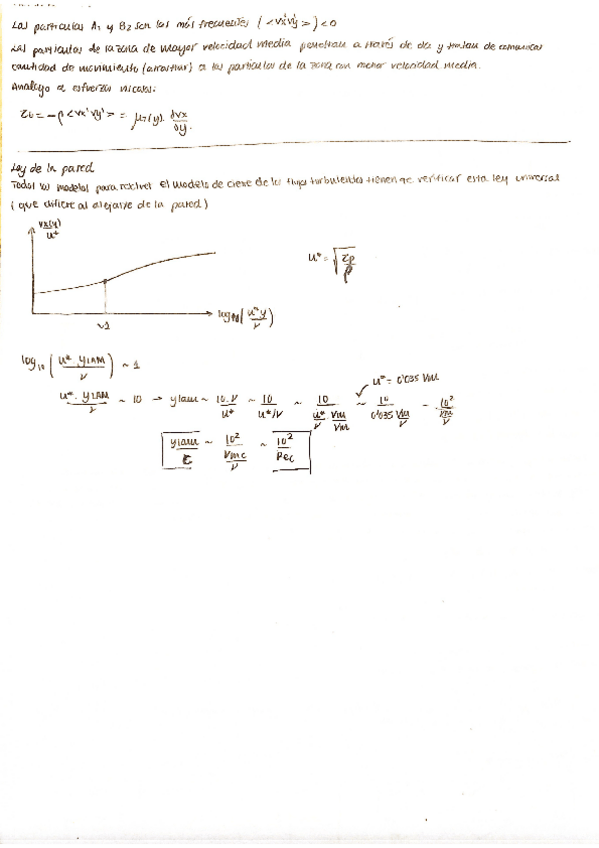 Las partículas A₁ y B₂ son las más frecuentes (<vx'vy'>)<0
Las partículas de la zona de mayor velocidad media penetran a través de da y tratan de comunicar
cantidad de movimiento (arrastrar) a las partículas de la zona con menor velocidad media.
Análogo a esfuerzos viscosos:
τt = -ρ<vx'vy'> = μT(y) ∂vx/∂y.
Ley de la pared
Todos los modelos para resolver el modelo de cierre de los flujos turbulentos tienen que verificar esta ley universal
(que difiere al alejarse de la pared)
vx(y)/u*
u* = √(τp/ρ)
log₁₀(u*y/ν)
~1
log₁₀(u*·yLAM/ν) ~ 1
u* = 0'035 Vm
u*·yLAM/ν ~ 10 → ylam ~ 10·ν/u* ~ 10/(u*/ν) ~ 10/(u*/ν · Vm/Vm) ~ 10/(0'035 Vm/ν) ~ 10²/(Vm/ν)
ylam/c ~ 10²/(Vmc/ν) ~ 10²/Rec